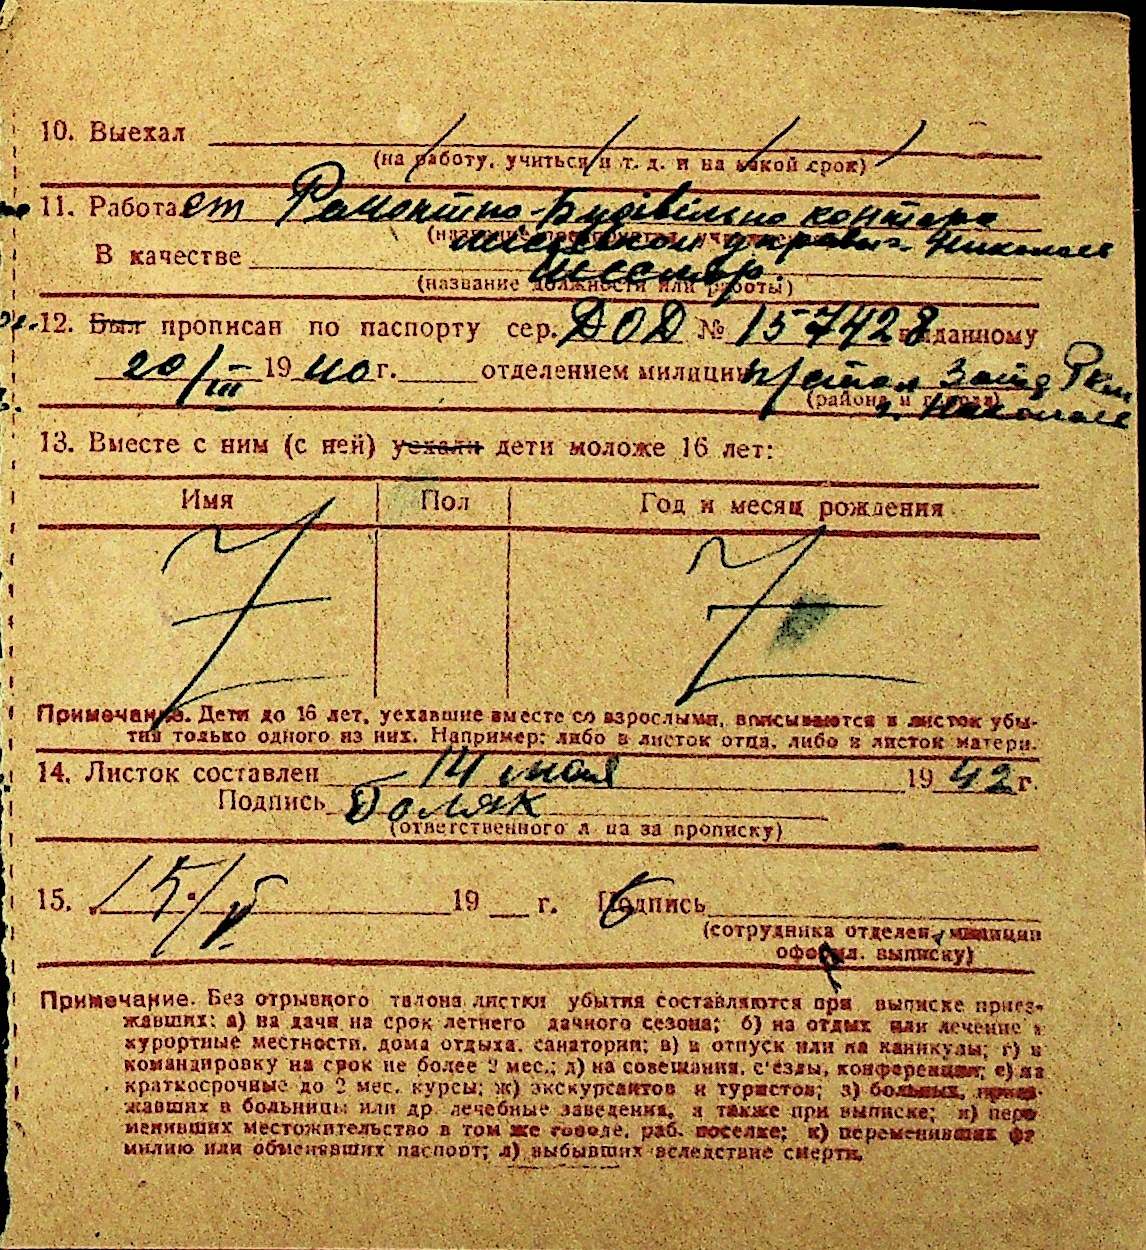 10. Выехал
(на работу, учиться и т. д. и на какой срок)
11. Работает Ремонтно-Будівільно контора
управы г. Николаев
В качестве
(название должности или работы)
12. Был прописан по паспорту сер. ДОД № 157428 выданному
20/III 1940 г. отделением милиции
(района и города)
г. Николаев
13. Вместе с ним (с ней) уехали дети моложе 16 лет:
Имя Пол Год и месяц рождения
Примечание. Дети до 16 лет, уехавшие вместе со взрослыми, вписываются в листок убы-
тия только одного из них. Например: либо в листок отца, либо в листок матери.
14. Листок составлен 14 мая 1942 г.
Подпись Поляк
(ответственного лица за прописку)
15. 15/V 19 г. Подпись
(сотрудника отделен. милиции
оформл. выписку)
Примечание. Без отрывного талона листки убытия составляются при выписке приез-
жавших: а) на дачи на срок летнего дачного сезона; б) на отдых или лечение в
курортные местности, дома отдыха, санатории; в) в отпуск или на каникулы; г) в
командировку на срок не более 2 мес.; д) на совещания, с'езды, конференции; е) на
краткосрочные до 2 мес. курсы; ж) экскурсантов и туристов; з) больных, приез-
жавших в больницы или др. лечебные заведения, а также при выписке; и) пере-
менивших местожительство в том же городе, раб. поселке; к) переменивших фа-
милию или обменявших паспорт; л) выбывших вследствие смерти.